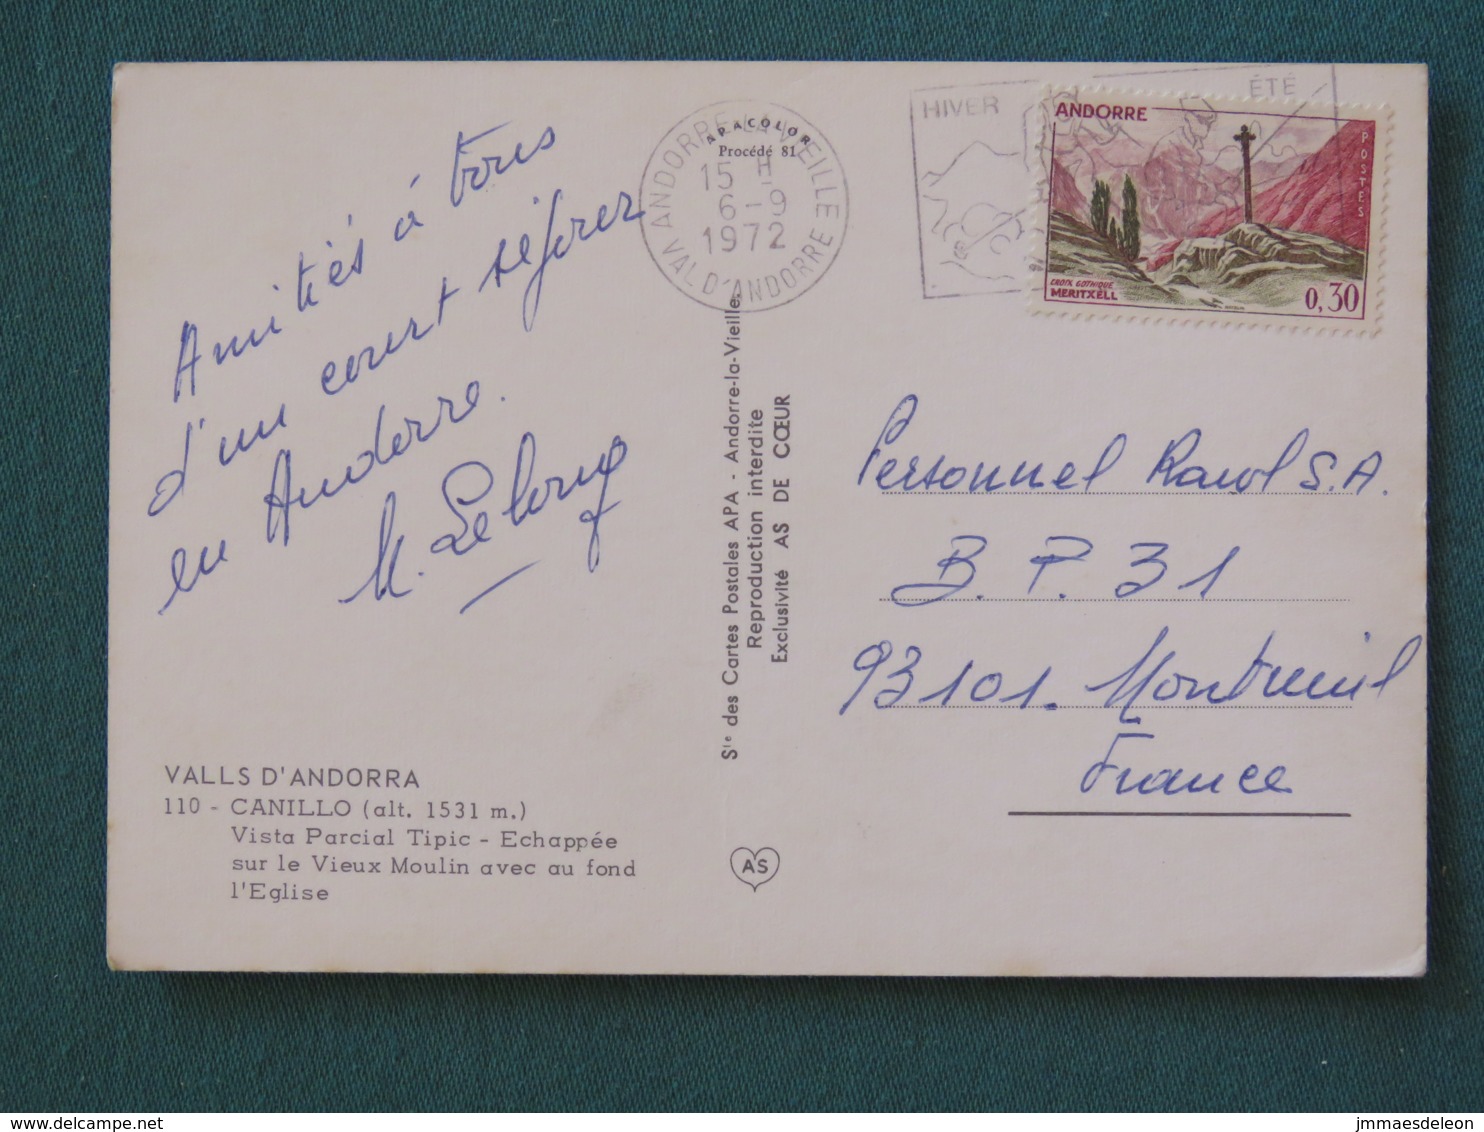 Amitiés à tous
d'un court séjour
en Andorre.
M. Lelong
VALLS D'ANDORRA
110 - CANILLO (alt. 1531 m.)
Vista Parcial Tipic - Echappée
sur le Vieux Moulin avec au fond
l'Eglise
APACOLOR
Procédé 81
ANDORRE-LA-VIEILLE
15 H
6-9
1972
VAL D'ANDORRE
Sté des Cartes Postales APA - Andorre-la-Vieille.
Reproduction interdite
Exclusivité AS DE CŒUR
AS
HIVER
ÉTÉ
ANDORRE
POSTES
CROIX GOTHIQUE
MERITXELL
0,30
Personnel Raoul S.A.
B.P. 31
93101. Montreuil
France
delcampe.net
jmmaesdeleon